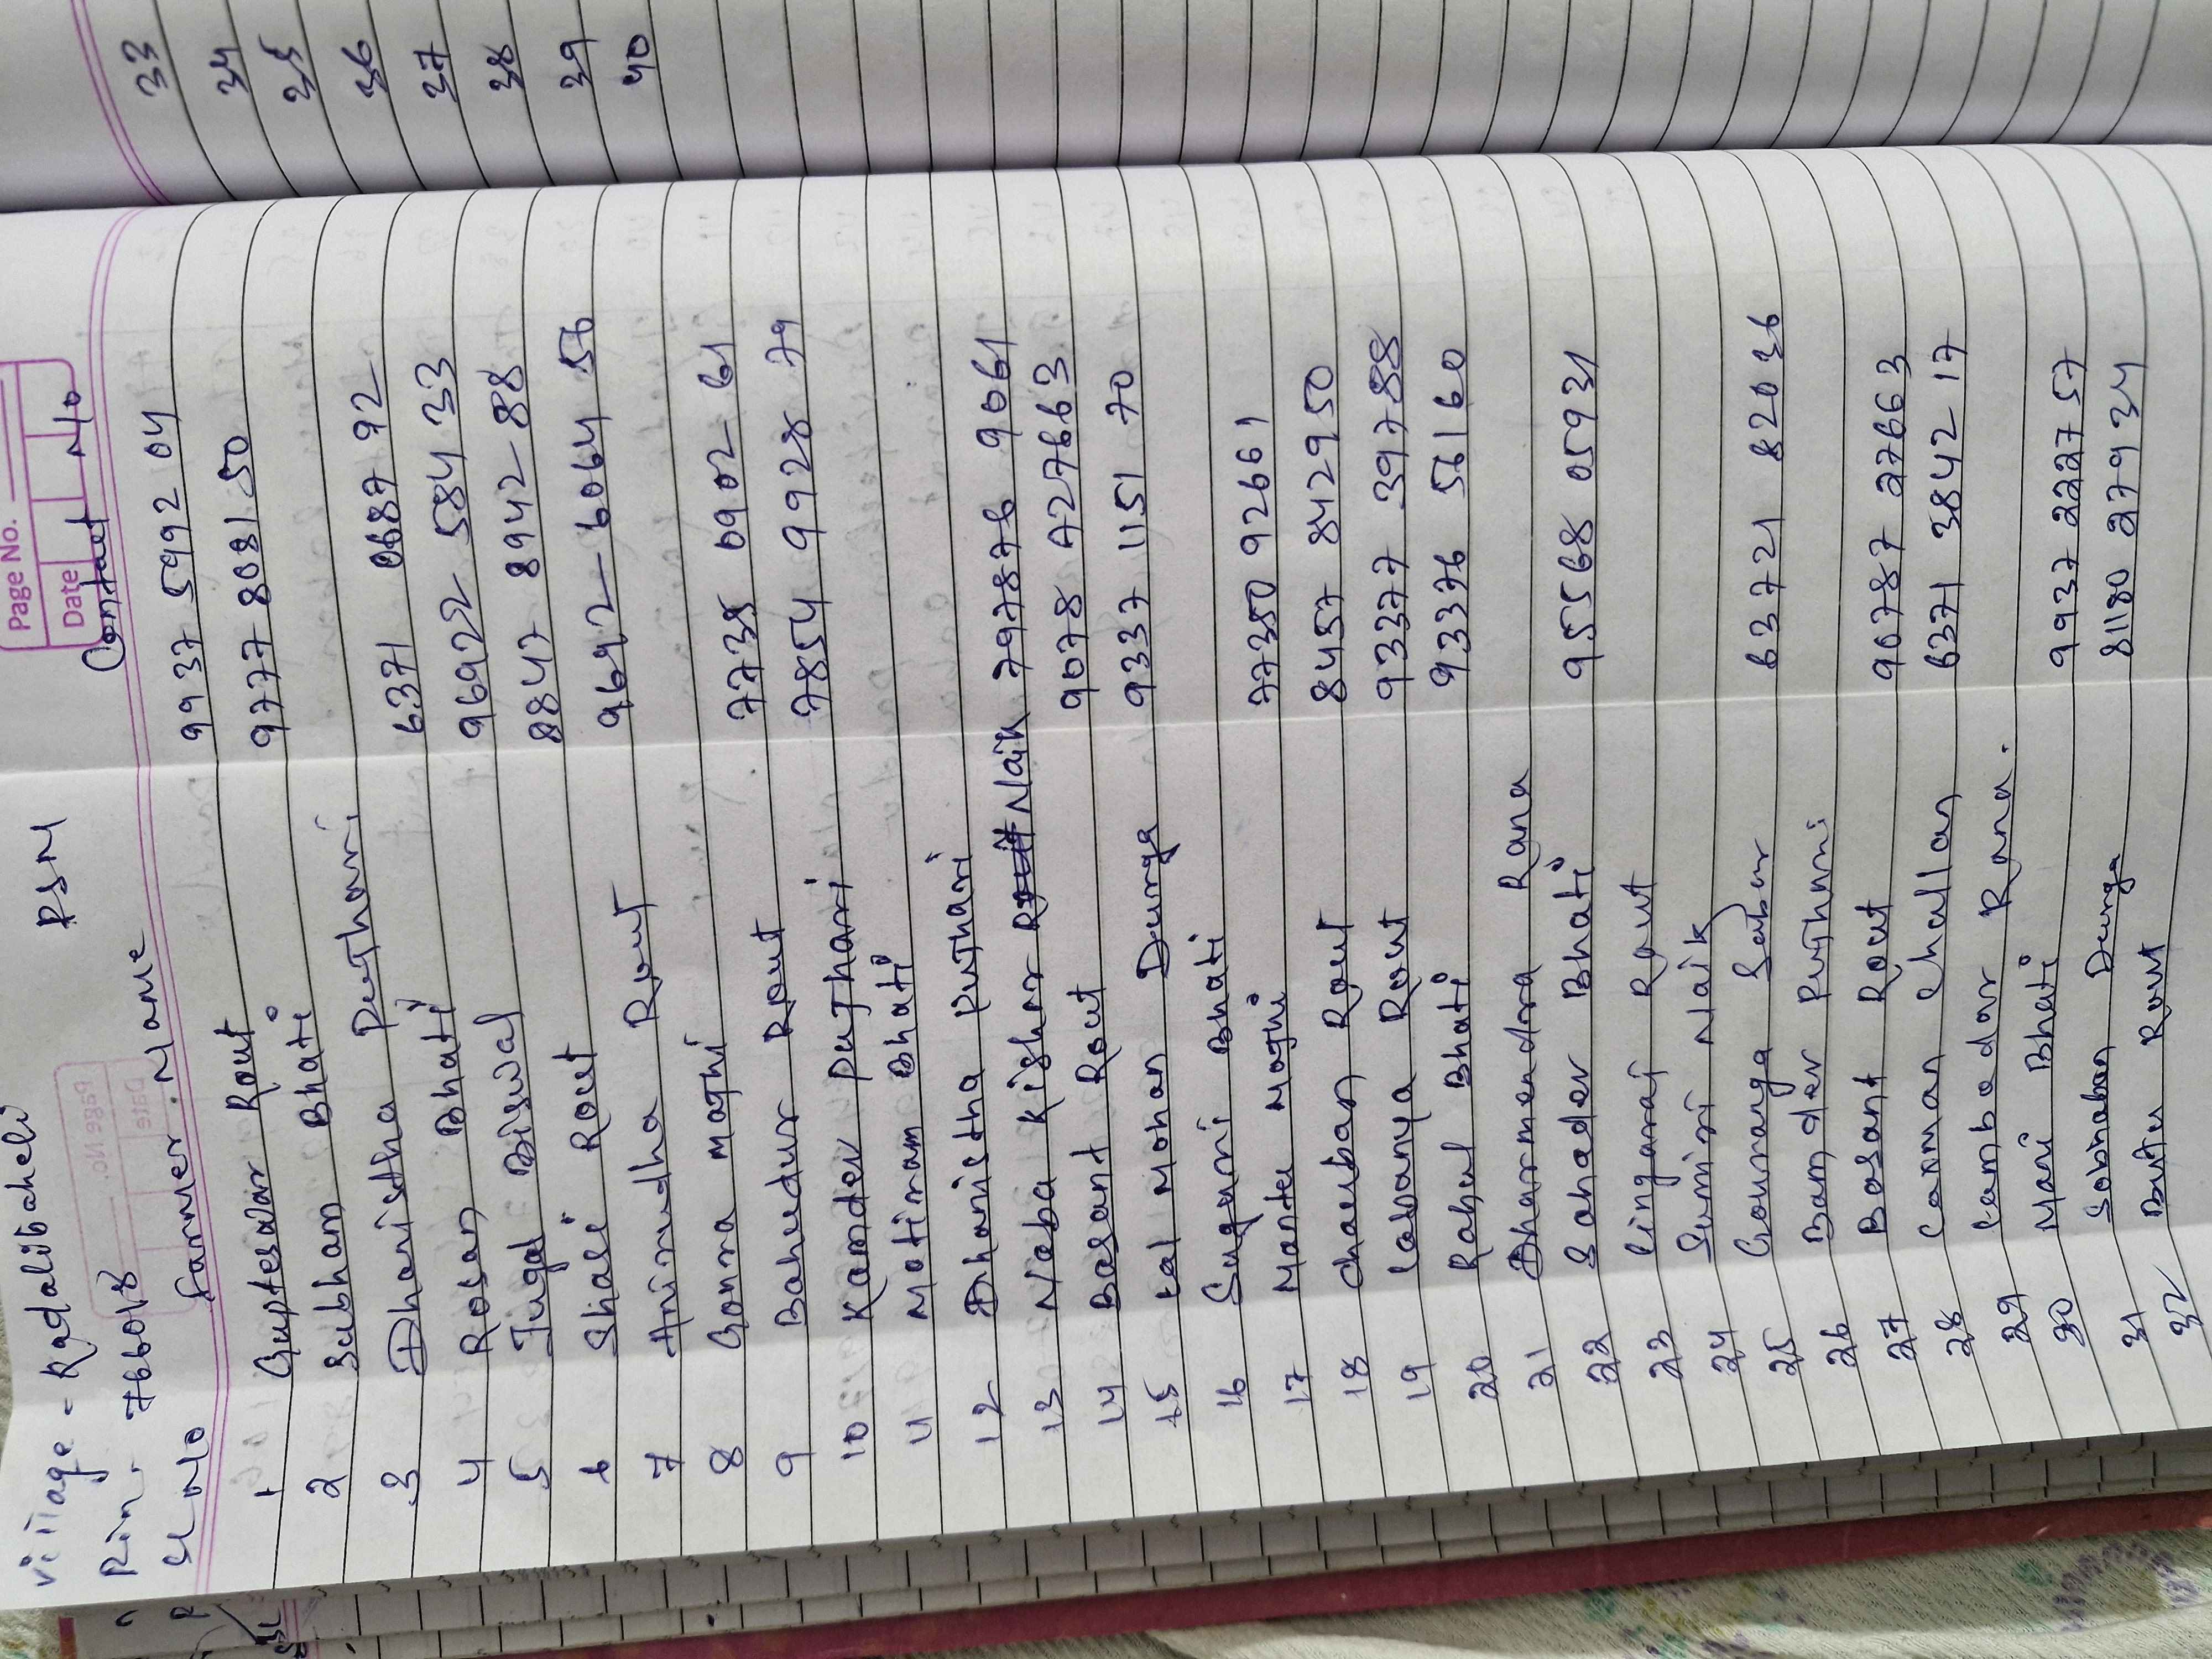 Page No.
Date
Village = Kadalibaheli RSM
Pin- 766018
Sl No Farmer Name Contact No
1 Guptesar Rout 9937 5992 04
2 Subham Bhati 9777 8081 50
3 Dhanistha Puthari
4 Rosan Bhati 6371 0687 92
5 Jugal Biswal 96922 584 33
6 Shasi Rout 8847 8942 88
7 Anirudha Rout 9692-6064 56
8 Gonra Majhi
9 Bahudur Rout 7738 0902 61
10 Kamdev Puthari 7854 9928 79
11 Motiram Bhati
12 Dhanistha Puthari
13 Naba Kishor Naik 797876 9061
14 Basant Rout 9078 7227663
15 Lal Mohan Durga 9337 1151 70
16 Sugani Bhati
17 Mantu Majhi 77350 92661
18 Chaurban Rout 8457 842950
19 Labanya Rout 93377 39788
20 Rahul Bhati 93376 56160
21 Dharmendra Rana
22 Sahader Bhati 95568 05931
23 Lingaraj Rout
24 Sumiri Naik
25 Gouranga Sabar 63721 82036
26 Bamder Puthari
27 Basant Rout 90787 27663
28 Laxman Challan 6371 3842 17
29 Lambodar Rana.
30 Mani Bhati 9937 2227 57
31 Sobhaban Durga 81180 27934
32 Butu Rout
33
34
35
36
37
38
39
40